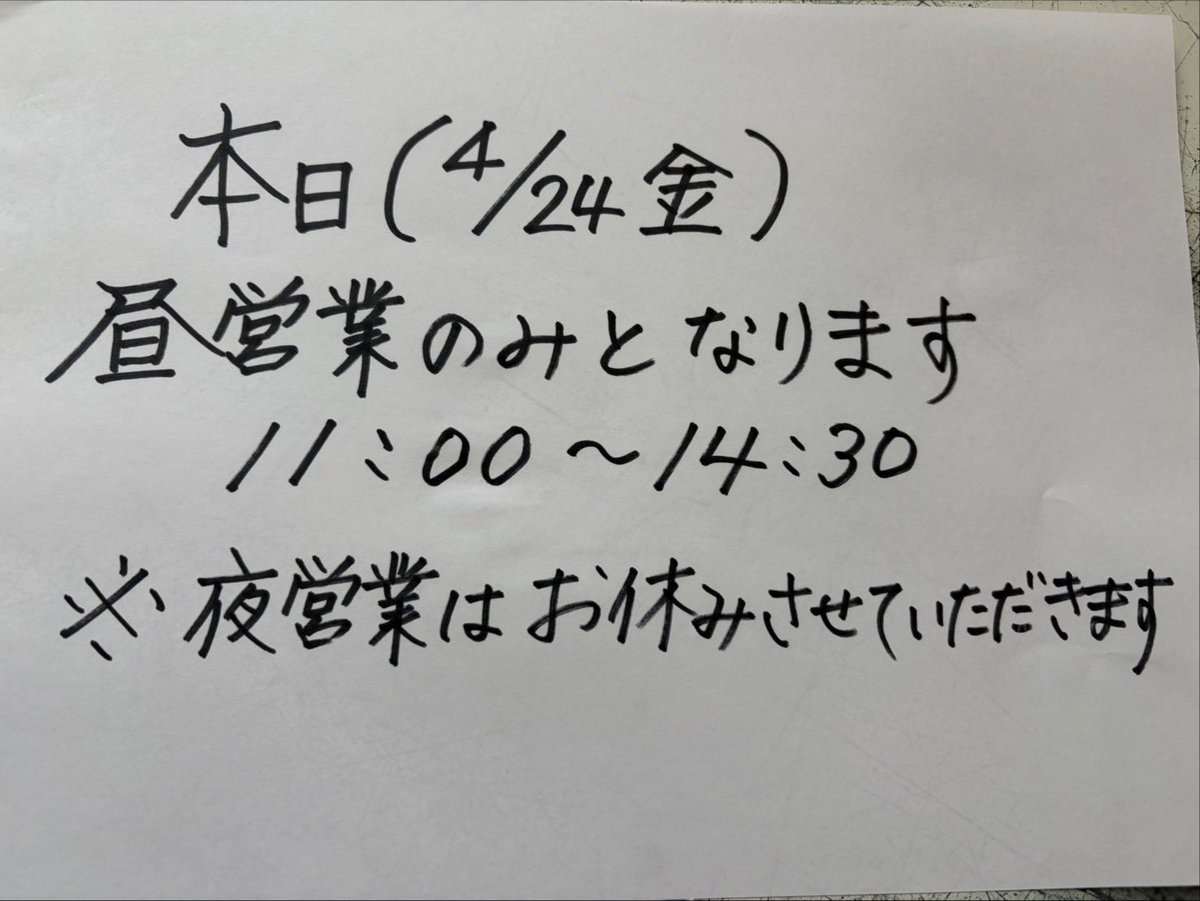 本日(4/24金)
昼営業のみとなります
11:00〜14:30
※夜営業はお休みさせていただきます